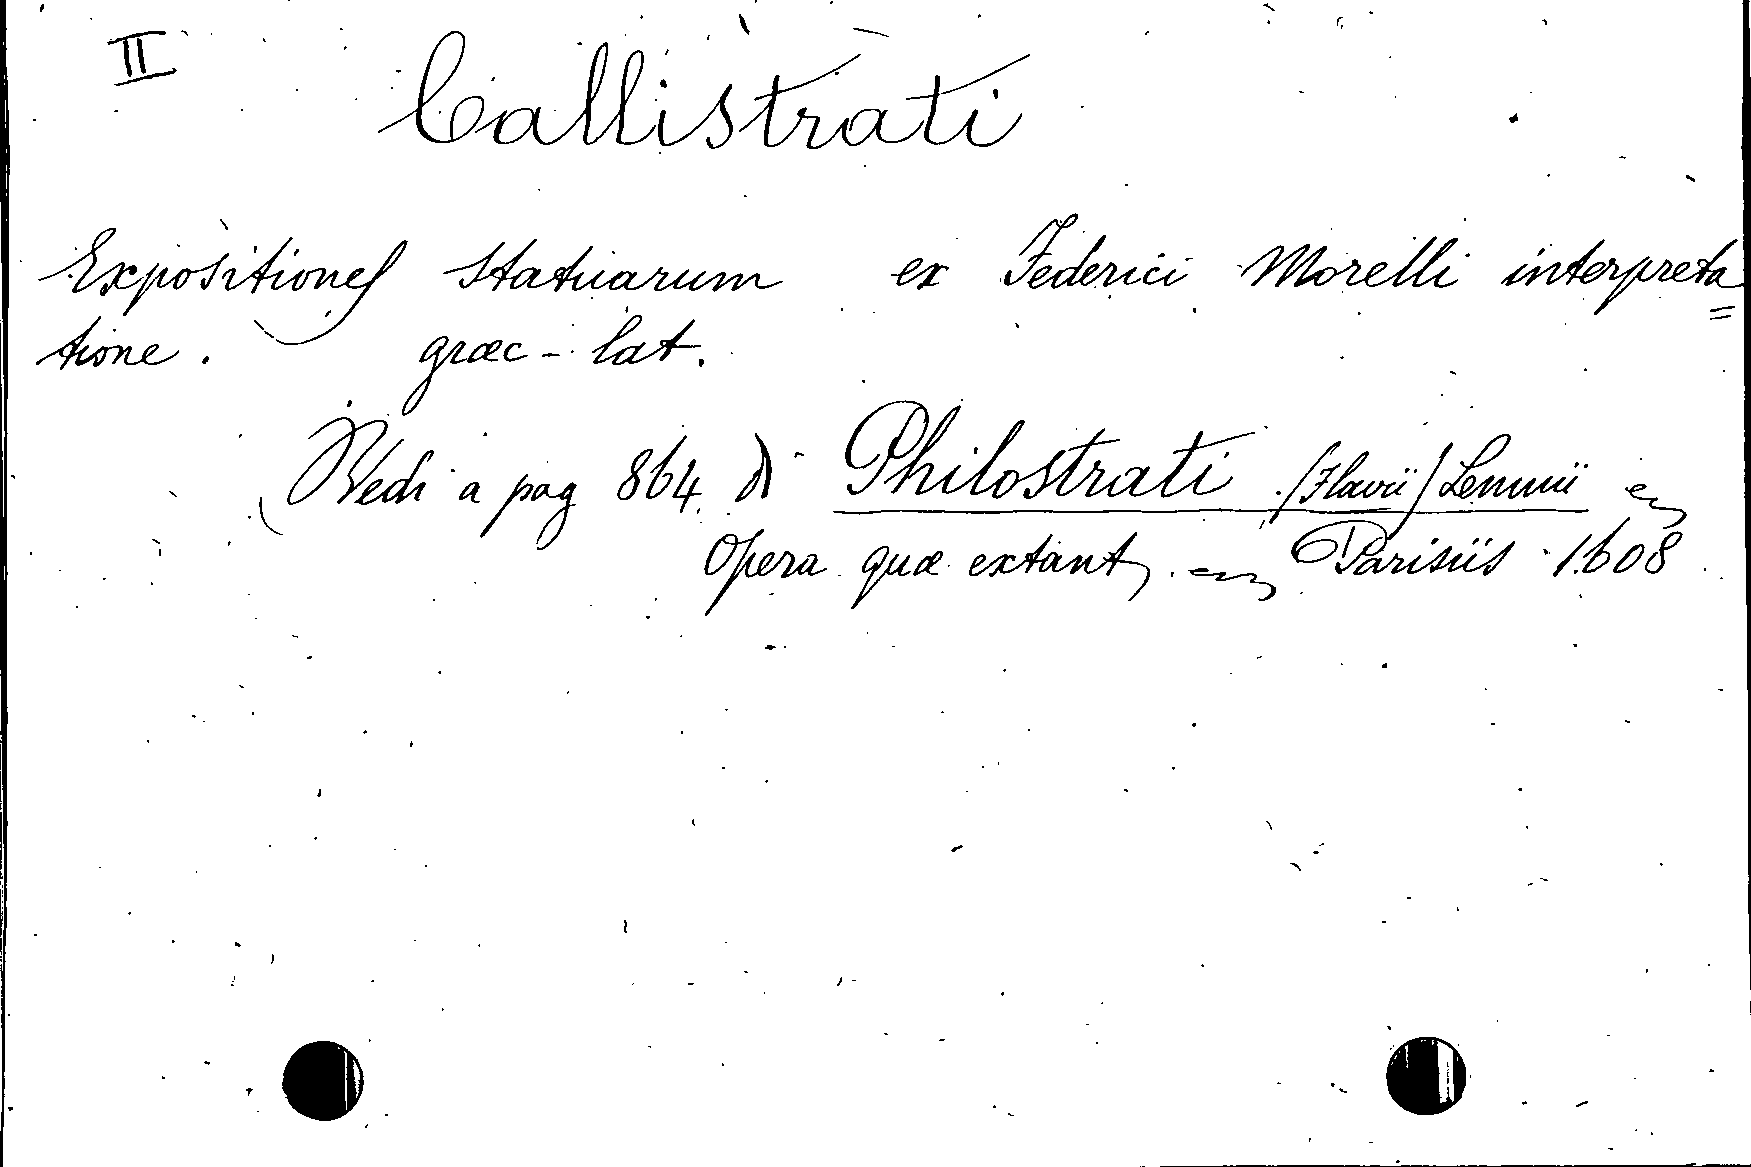 II
Callistrati
Expositiones statuarum ex Federici Morelli interpreta=
tione. græc - lat.
(Vedi a pag 864 di Philostrati (Flavii) Lemnii
Opera quæ extant, Parisiis 1608